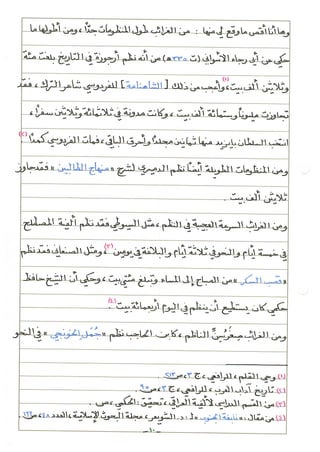 وهاأنا أقص ما وقع لي منها: - من الغرائب طول المنظومات جدًا، ومن أطولها ما
حكي عن أبي رجاء الأسواني (ت ٣٣٥هـ) من أنه نظم أرجوزة في التاريخ بلغت مئة
وثلاثين ألف بيت(١)، وأعجب من ذلك [الشاهنامة] للفردوسي شاعر الترك، فقد
تجاوزت مليونًا وستمائة ألف بيت، وكانت مدونة في ثلاثمائة وثلاثين سفرًا،
انتخب السلطان بايزيد منها ثمانين مجلدًا وأحرق الباقي، فمات الفردوسي كمدًا.(٢)
ومن المنظومات الطويلة أيضًا نظم الدميري لشرح «منهاج الطالبين» فقد جاوز
ثلاثين ألف بيت.
ومن الغرائب السرعة العجيبة في النظم، مثل السيوطي فقد نظم ألفية المصطلح
في خمسة أيام والنحو في ثلاثة أيام والبلاغة في يومين(٣)، ومثل الصنعاني فقد نظم
«قصب السكر» من الصباح إلى المساء وتبلغ مئتي بيت، وحكي أن الشيخ حافظ
حكمي كان يستطيع أن ينظم في اليوم أربعمائة بيت(٤).
ومن الغرائب صِغَرُ سِنِّ الناظم، كابن الحاجب نظم «جُمَل الخونجي» في النحو
(١) وحي القلم، للرافعي، ج٣، ص
(٢) تاريخ آداب العرب، للرافعي، ج٣، ص
(٣) من القسم الدراسي لألفية العراقي، تحقيق: الحكمي، ص.
(٤) من مقال: «نابغة الجنوب» لـ: د. الشويعر، مجلة البحوث الإسلامية، العدد